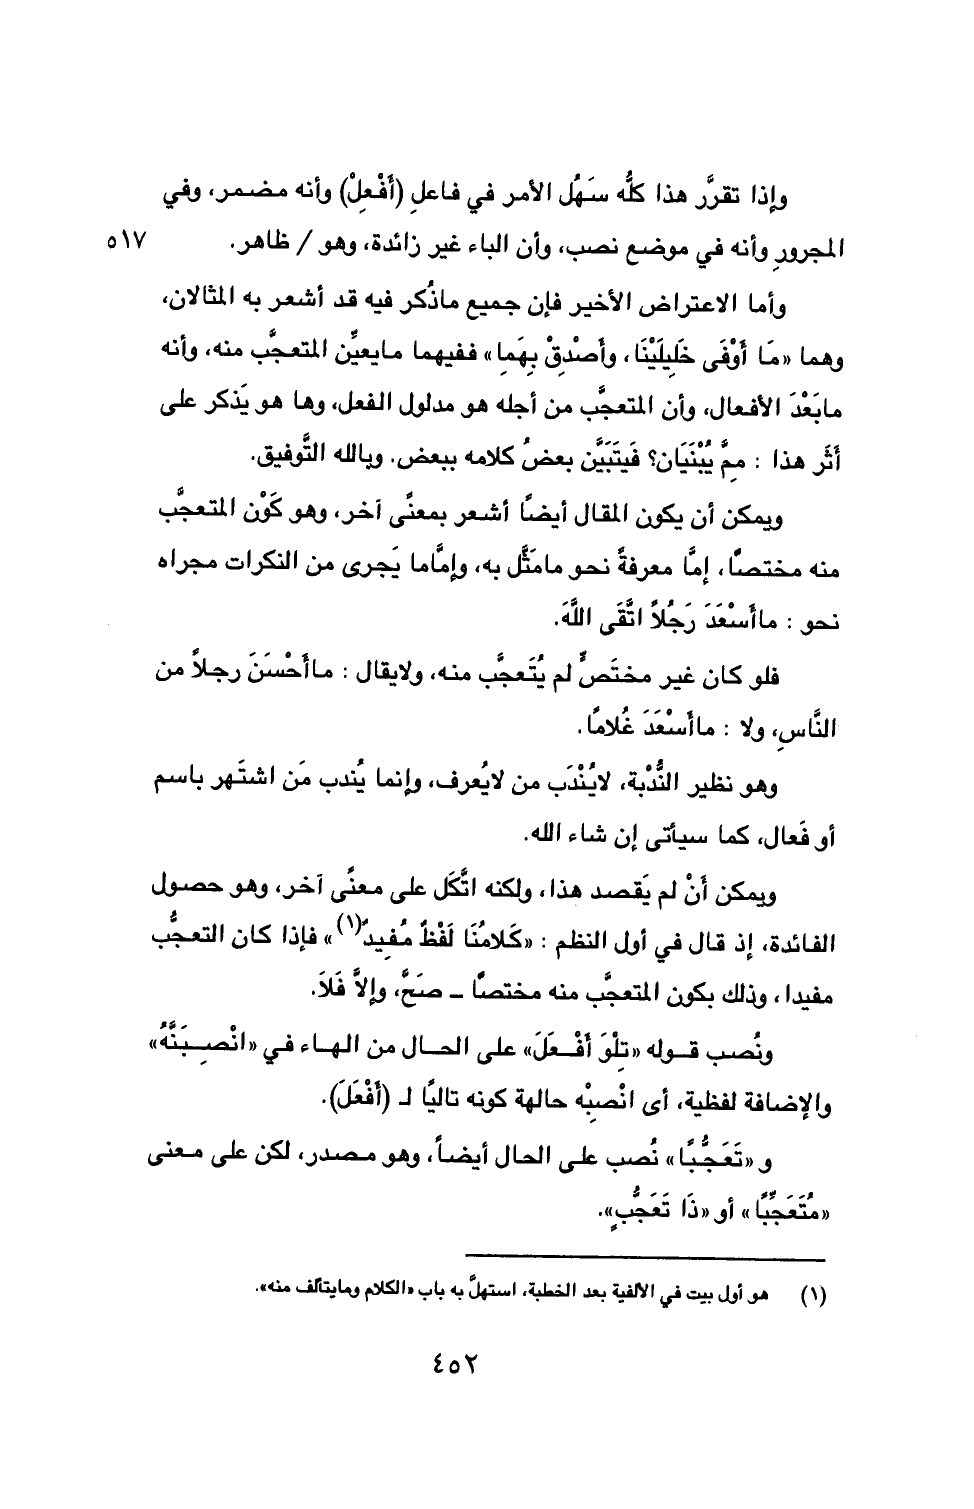 وإذا تقرَّر هذا كلُّه سَهُل الأمر في فاعلِ (أَفْعِلْ) وأنه مضمر، وفي
المجرورِ وأنه في موضع نصب، وأن الباء غير زائدة، وهو / ظاهر. ٥١٧
وأما الاعتراض الأخير فإن جميع ماذُكر فيه قد أشعر به المثالان،
وهما «مَا أَوْفَى خَلِيلَيْنَا، وأَصْدِقْ بِهَما» ففيهما مايعيِّن المتعجَّب منه، وأنه
مابَعْدَ الأفعال، وأن المتعجَّب من أجله هو مدلول الفعل، وها هو يَذكر على
أَثَر هذا : مِمَّ يُبْنَيَان؟ فَيتَبَيَّن بعضُ كلامه ببعض. وبالله التَّوفيق.
ويمكن أن يكون المقال أيضًا أشعر بمعنًى آخر، وهو كَوْن المتعجَّب
منه مختصًّا، إمَّا معرفةً نحو مامَثَّل به، وإمَّاما يَجرى من النكرات مجراه
نحو : ماأَسْعَدَ رَجُلاً اتَّقَى اللَّهَ.
فلو كان غير مختصٍّ لم يُتَعجَّب منه، ولايقال : ماأَحْسَنَ رجلاً من
النَّاسِ، ولا : ماأَسْعَدَ غُلامًا.
وهو نظير النُّدْبة، لايُنْدَب من لايُعرف، وإنما يُندب مَن اشتَهر باسم
أو فَعال، كما سيأتى إن شاء الله.
ويمكن أَنْ لم يَقصد هذا، ولكنه اتَّكَل على معنًى آخر، وهو حصول
الفائدة، إذ قال في أول النظم : «كَلامُنَا لَفْظٌ مُفِيدٌ(١)» فإذا كان التعجُّب
مفيدا، وذلك بكون المتعجَّب منه مختصًّا ــ صَحَّ، وإلاَّ فَلاَ.
ونُصب قـوله «تِلْوَ أَفْـعَلَ» على الحـال من الهـاء في «انْصِـبَنَّهُ»
والإضافة لفظية، أى انْصِبْه حالهة كونه تاليًا لـ (أَفْعَلَ).
و «تَعَجُّبًا» نُصب على الحال أيضاً، وهو مـصدر، لكن على معنى
«مُتَعَجِّبًا» أو «ذَا تَعَجُّبٍ».
(١) هو أول بيت في الألفية بعد الخطبة، استهلَّ به باب «الكلام ومايتألف منه».
٤٥٢